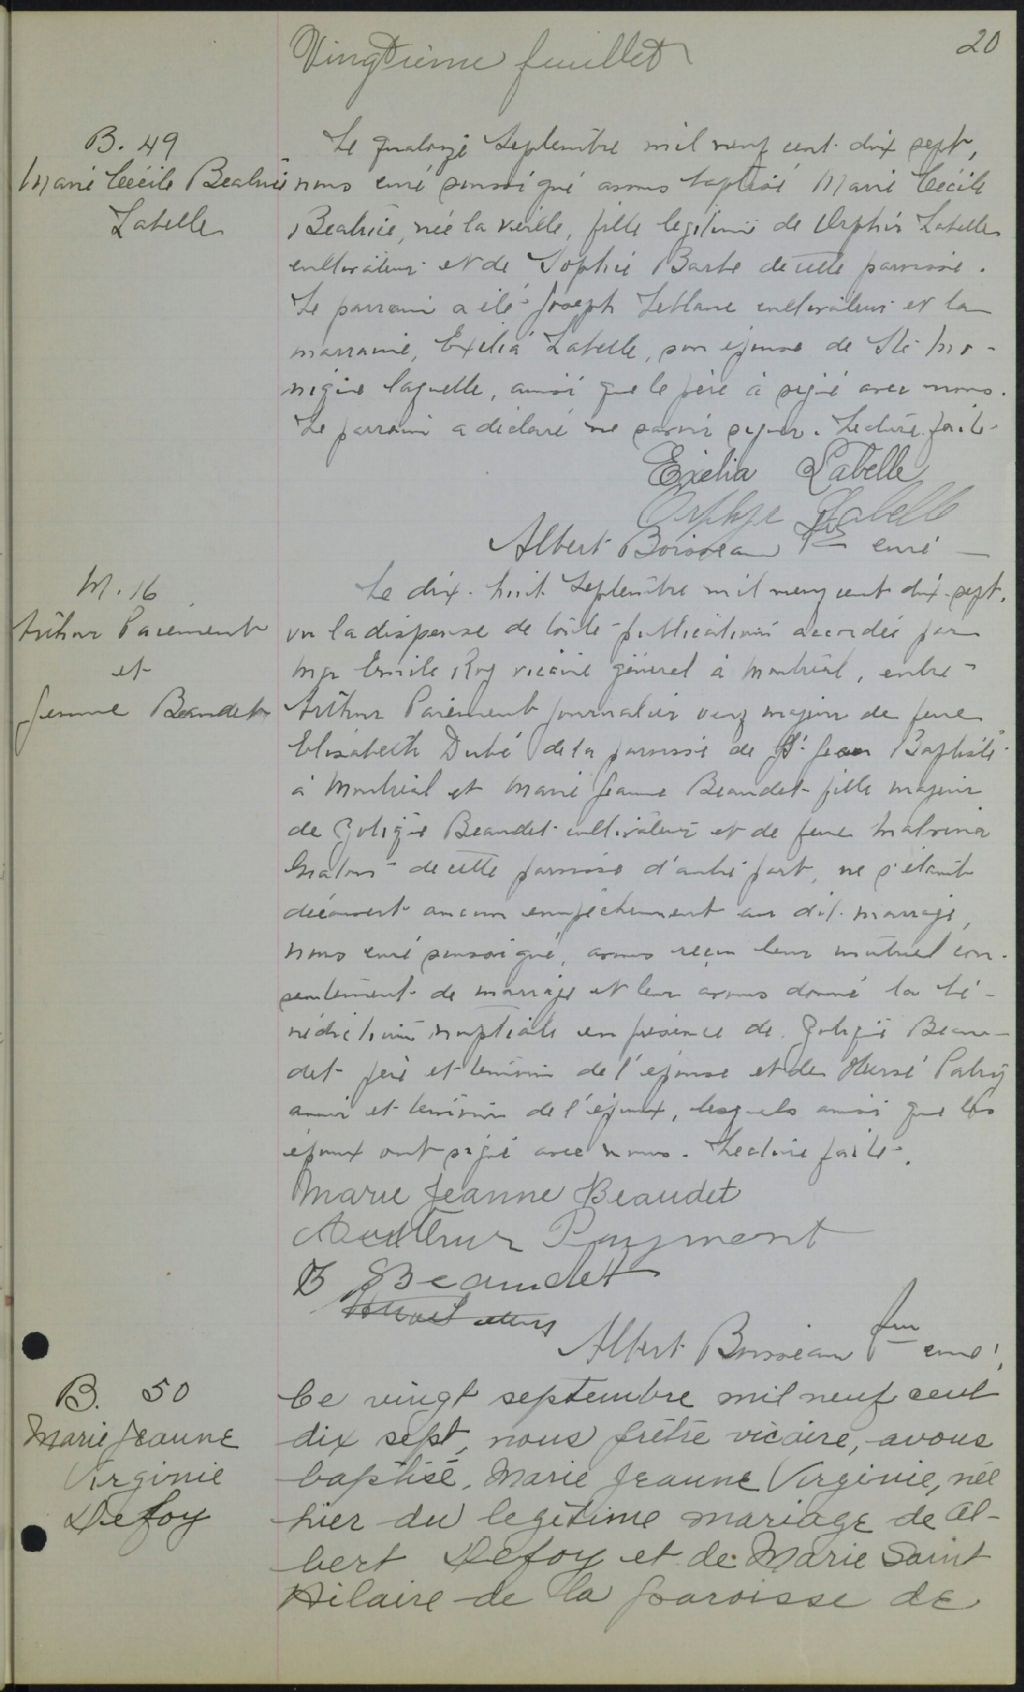 Vingtième feuillet
20
B. 49
Marie Cécile Beatrice
Labelle
Le quatorze Septembre mil neuf cent dix sept,
nous curé soussigné avons baptisé Marie Cécile
Beatrice, née la veille, fille légitime de Orphir Labelle
cultivateur et de Sophie Barbe de cette paroisse.
Le parrain a été Joseph Leblanc cultivateur et la
marraine, Exilia Labelle, son épouse de Ste Mo-
nique laquelle, ainsi que le père a signé avec nous.
Le parrain a déclaré ne savoir signer. Lecture faite.
Exelia Labelle
Labelle
Albert Boisseau Ptre curé
M. 16
Arthur Paiement
et
Jeanne Beaudet
Le dix-huit Septembre mil neuf cent dix-sept,
vu la dispense de toute publication accordée par
Mgr Emile Roy vicaire général à Montréal, entre
Arthur Paiement journalier veuf majeur de feue
Elisabeth Dubé de la paroisse de St Jean Baptiste
à Montréal et Marie Jeanne Beaudet fille majeure
de Zotique Beaudet cultivateur et de feue Malvina
de cette paroisse d'autre part, ne s'étant
découvert aucun empêchement au dit mariage,
nous curé soussigné, avons reçu leur mutuel con-
sentement de mariage et leur avons donné la bé-
nédiction nuptiale en présence de Zotique Beau-
det père et témoin de l'épouse et de
ami et témoin de l'époux, lesquels ainsi que les
époux ont signé avec nous. Lecture faite.
Marie Jeanne Beaudet
Arthur Payment
Z Beaudet
Albert Boisseau Ptre curé
B. 50
Marie Jeanne
Virginie
Defoy
Ce vingt septembre mil neuf cent
dix sept, nous prêtre vicaire, avons
baptisé, Marie Jeanne Virginie, née
hier du legitime mariage de Al-
bert Defoy et de Marie Saint
Hilaire de la paroisse de